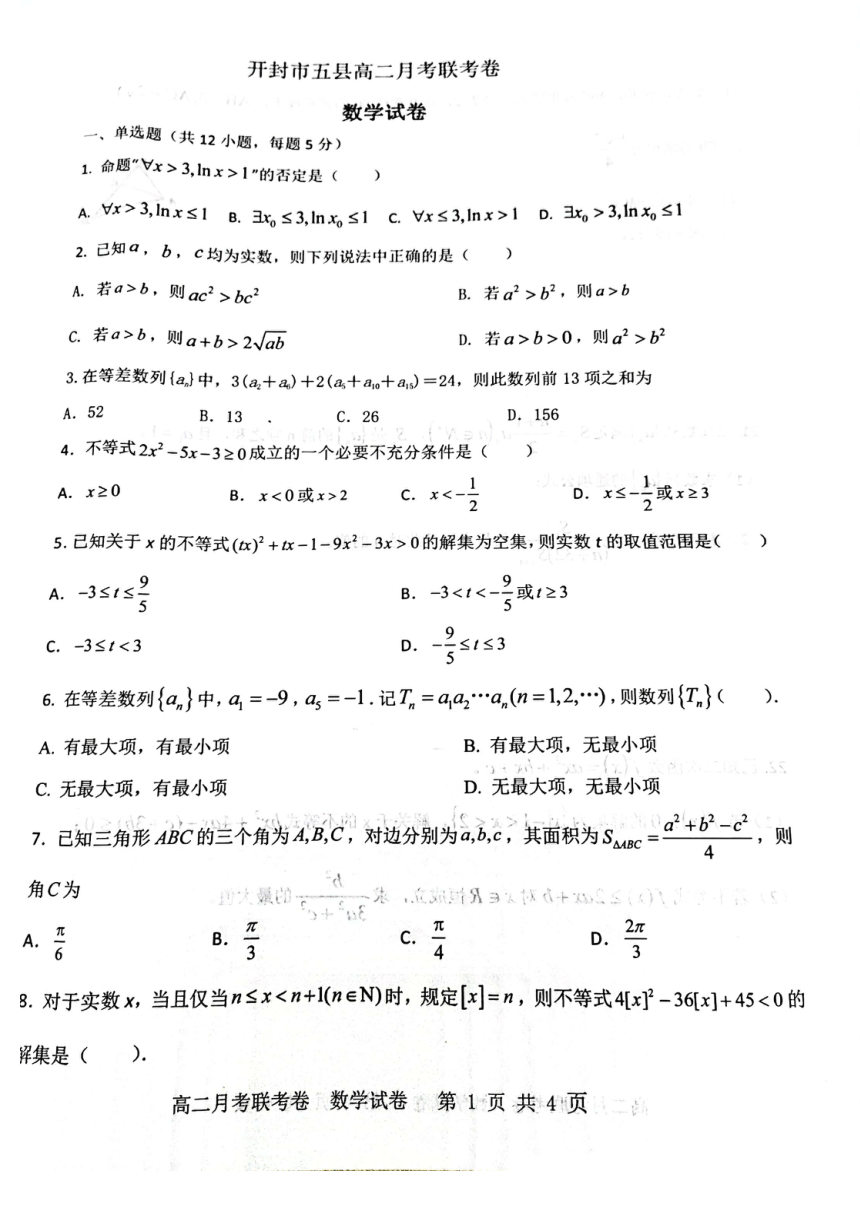 开封市五县高二月考联考卷
数学试卷
一、单选题（共 12 小题，每题 5 分）
1. 命题"∀x > 3, ln x > 1"的否定是（　　）
A. ∀x > 3, ln x ≤ 1 B. ∃x₀ ≤ 3, ln x₀ ≤ 1 C. ∀x ≤ 3, ln x > 1 D. ∃x₀ > 3, ln x₀ ≤ 1
2. 已知a，b，c均为实数，则下列说法中正确的是（　　）
A. 若a>b，则ac² > bc² B. 若a² > b²，则a>b
C. 若a>b，则a+b > 2√ab D. 若a>b>0，则a² > b²
3. 在等差数列{aₙ}中，3(a₂+a₆)+2(a₅+a₁₀+a₁₅)=24，则此数列前 13 项之和为
A. 52 B. 13 . C. 26 D. 156
4. 不等式2x² − 5x − 3 ≥ 0成立的一个必要不充分条件是（　　）
A. x ≥ 0 B. x < 0或x > 2 C. x < −1/2 D. x ≤ −1/2或x ≥ 3
5. 已知关于 x 的不等式(tx)² + tx − 1 − 9x² − 3x > 0的解集为空集，则实数 t 的取值范围是(　　)
A. −3 ≤ t ≤ 9/5 B. −3 < t < −9/5或t ≥ 3
C. −3 ≤ t < 3 D. −9/5 ≤ t ≤ 3
6. 在等差数列{aₙ}中，a₁ = −9，a₅ = −1. 记Tₙ = a₁a₂⋯aₙ(n = 1,2,⋯)，则数列{Tₙ}(　　).
A. 有最大项，有最小项 B. 有最大项，无最小项
C. 无最大项，有最小项 D. 无最大项，无最小项
7. 已知三角形 ABC 的三个角为A,B,C，对边分别为a,b,c，其面积为S△ABC = (a² + b² − c²)/4，则
角C为
A. π/6 B. π/3 C. π/4 D. 2π/3
8. 对于实数 x，当且仅当n ≤ x < n+1(n∈N)时，规定[x] = n，则不等式4[x]² − 36[x] + 45 < 0 的
解集是（　　）.
高二月考联考卷 数学试卷 第 1 页 共 4 页